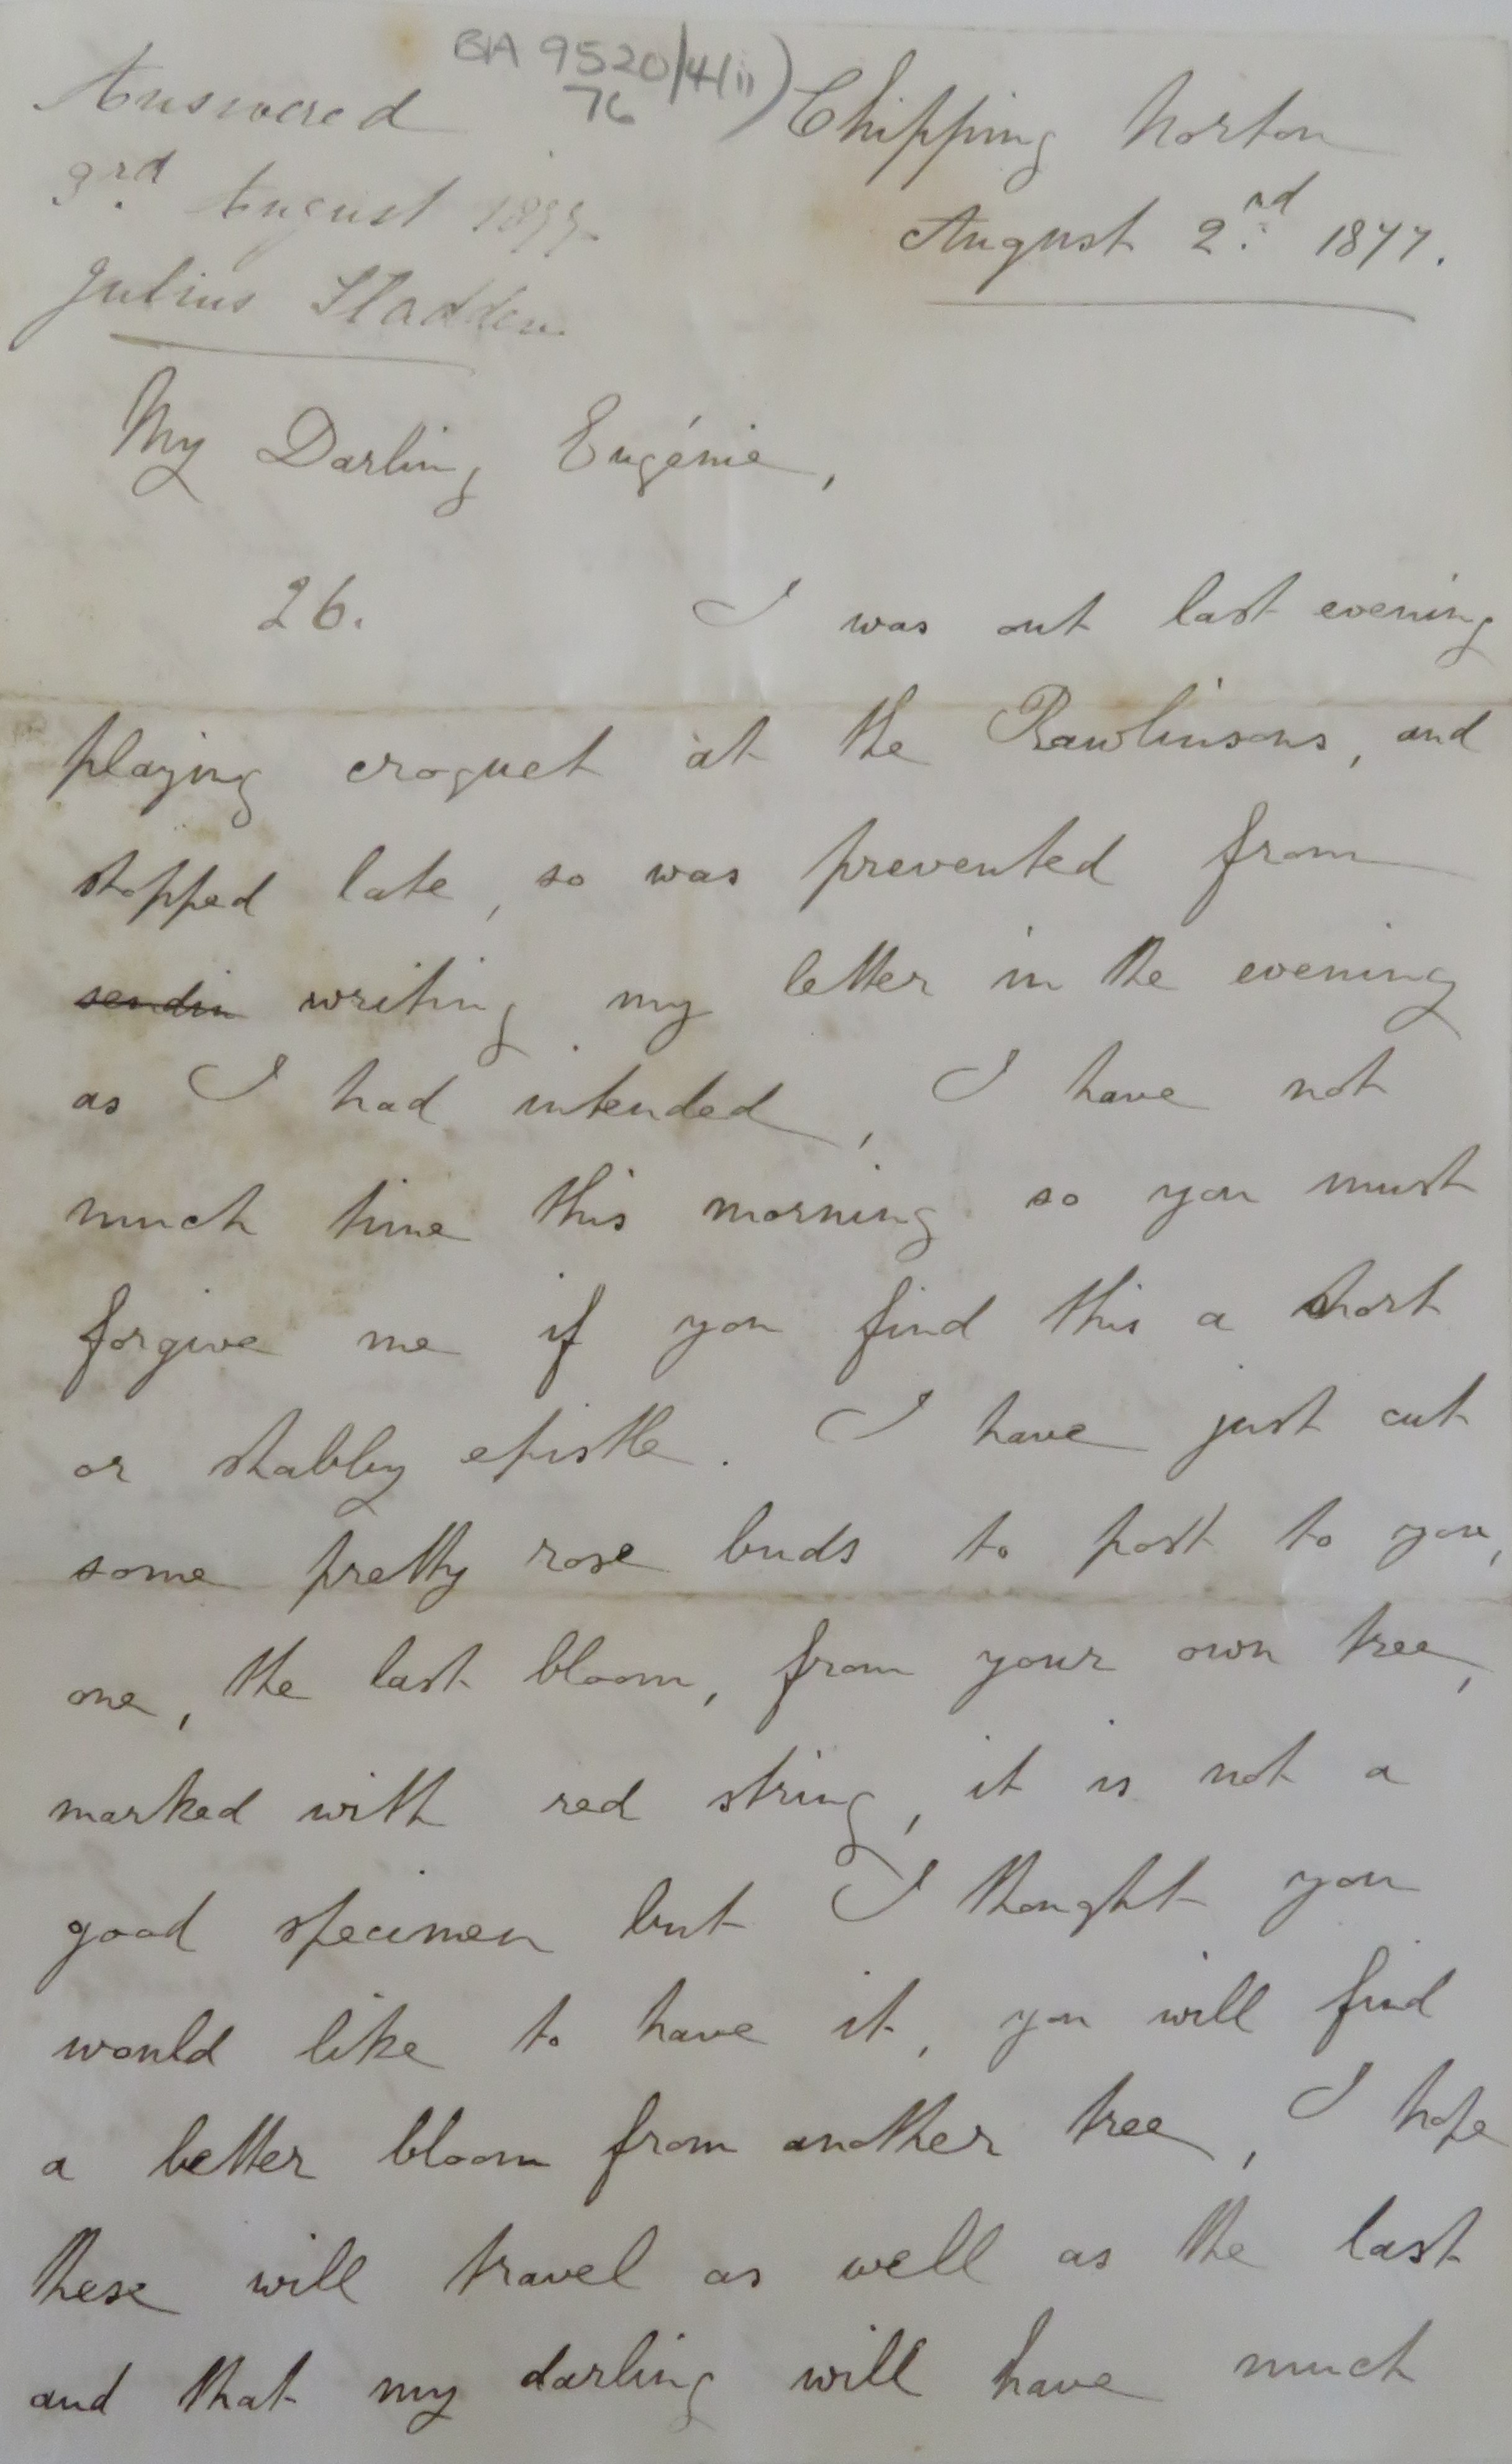 BA 9520/4(ii)
76
Answered
3rd. August 1877.
Julius Sladden
Chipping Norton
August 2nd. 1877.
My Darling Eugénie,
26. I was out last evening
playing croquet at the Rawlinsons, and
stopped late, so was prevented from
sendin writing my letter in the evening
as I had intended, I have not
much time this morning so you must
forgive me if you find this a short
or shabby epistle. I have just cut
some pretty rose buds to post to you,
one, the last bloom, from your own tree,
marked with red string, it is not a
good specimen but I thought you
would like to have it, you will find
a better bloom from another tree, I hope
these will travel as well as the last
and that my darling will have much